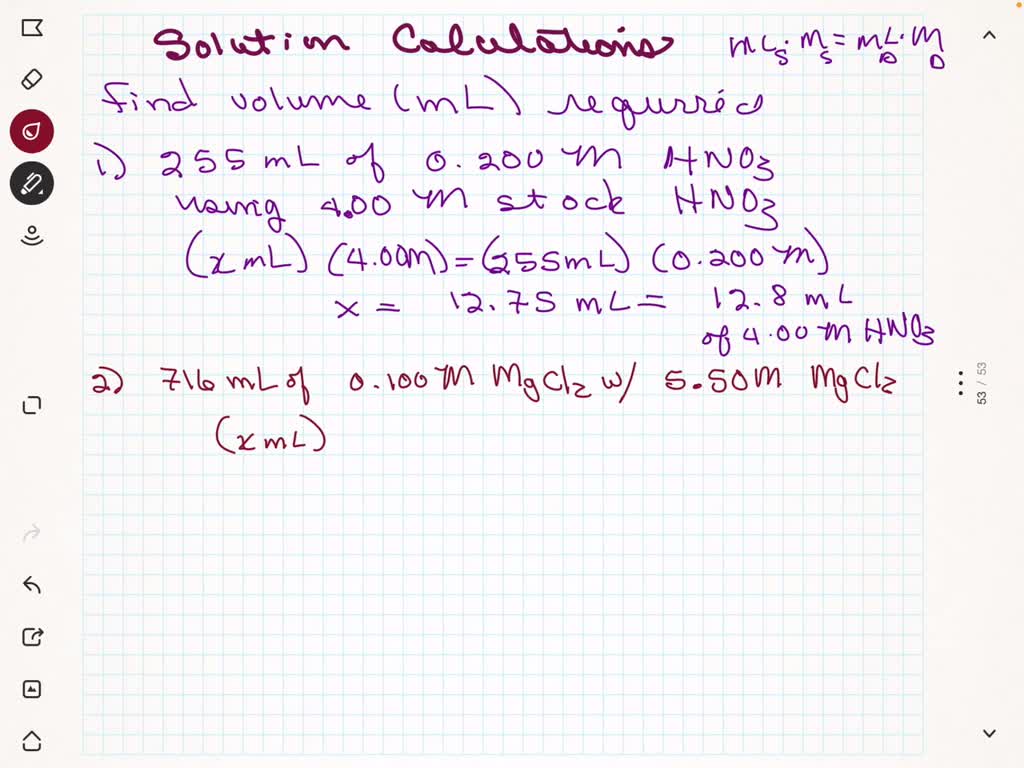 Solution Calculations mLs · Ms = mLD · MD
Find volume (mL) requurried
1) 255 mL of 0.200 M HNO3
using 4.00 M stock HNO3
(x mL) (4.00M) = (255mL) (0.200 M)
x = 12.75 mL = 12.8 mL
of 4.00 M HNO3
2) 716 mL of 0.100 M MgCl2 w/ 5.50M MgCl2
(x mL)
53 / 53